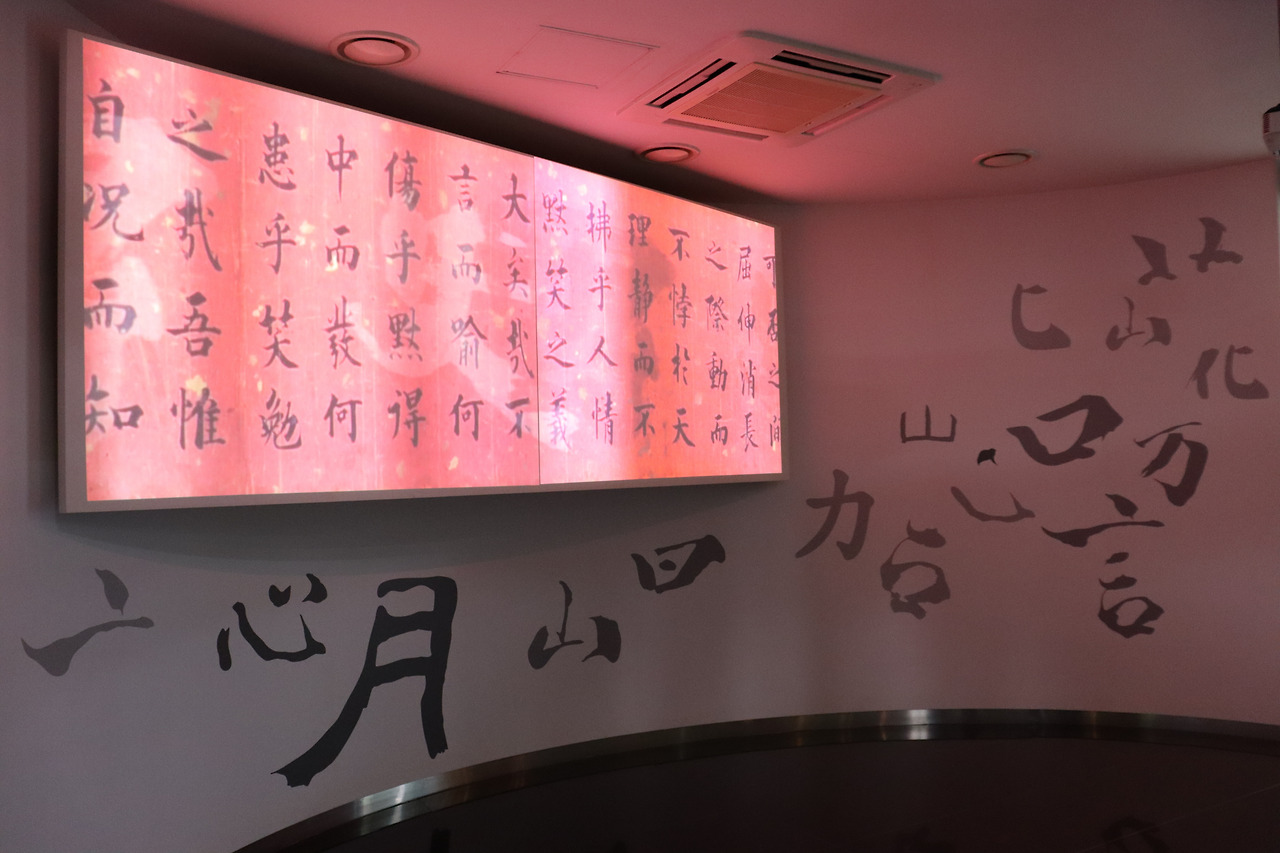 可之間
屈伸消長
之際動而
不悖於天
理靜而不
拂乎人情
黙笑之義
大矣哉不
言而喻何
傷乎黙得
中而發何
患乎笑勉
之哉吾惟
自況而知
匕
山
化
山
口
万
力
言
曰
山
月
心
亠